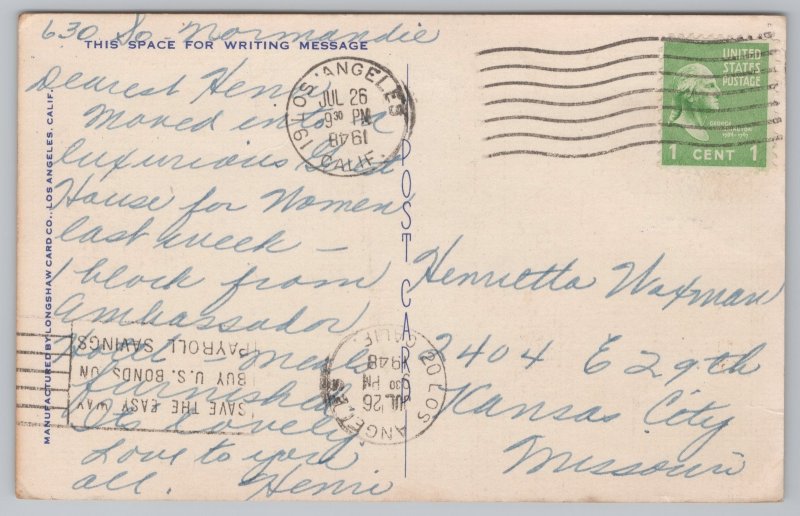 630 So Normandie
THIS SPACE FOR WRITING MESSAGE
Dearest Henri
Moved into a
luxurious Guest
House for Women
last week —
1 block from
Ambassador
Hotel Meals
furnished
Its lovely
Love to you
all. Henri
MANUFACTURED BY LONGSHAW CARD CO., LOS ANGELES, CALIF.
POST CARD
LOS ANGELES
19
JUL 26
9 30 PM
1948
CALIF.
UNITED
STATES
POSTAGE
GEORGE
WASHINGTON
1 CENT 1
Henrietta Waxman
2404 E 29th
Kansas City
Missouri
SAVE THE EASY WAY
BUY U.S. BONDS ON
PAYROLL SAVINGS
LOS ANGELES
20
JUL 26
30 PM
1948
CALIF.